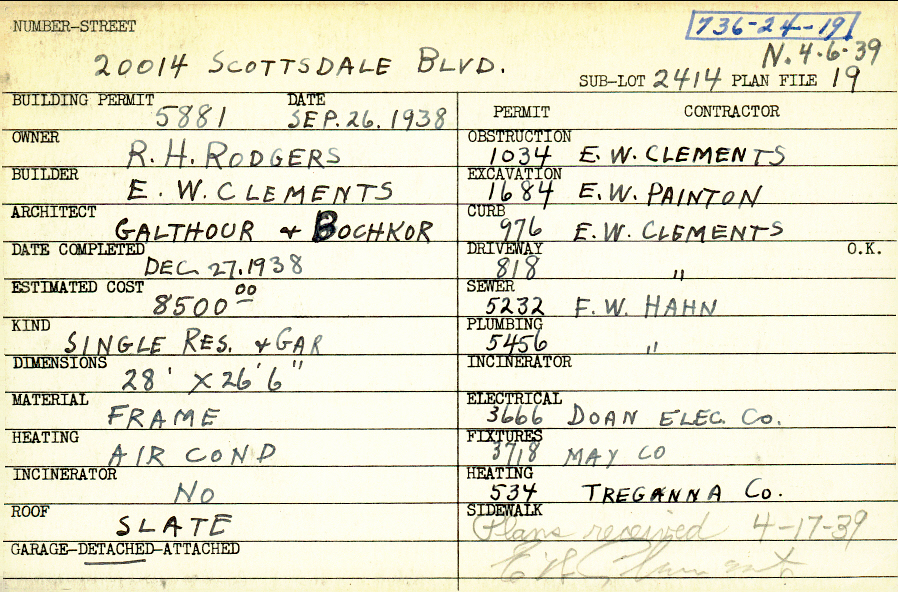 NUMBER-STREET
736-24-19
20014 SCOTTSDALE BLVD.
N. 4-6-39
SUB-LOT 2414 PLAN FILE 19
BUILDING PERMIT DATE
5881 SEP. 26. 1938
OWNER
R. H. RODGERS
BUILDER
E. W. CLEMENTS
ARCHITECT
GALTHOUR & BOCHKOR
DATE COMPLETED
DEC. 27. 1938
ESTIMATED COST
8500 00
KIND
SINGLE RES. & GAR
DIMENSIONS
28' X 26' 6"
MATERIAL
FRAME
HEATING
AIR COND
INCINERATOR
NO
ROOF
SLATE
GARAGE-DETACHED-ATTACHED
PERMIT CONTRACTOR
OBSTRUCTION
1034 E. W. CLEMENTS
EXCAVATION
1684 E.W. PAINTON
CURB
976 E.W. CLEMENTS
DRIVEWAY O.K.
818 "
SEWER
5232 F. W. HAHN
PLUMBING
5456 "
INCINERATOR
ELECTRICAL
3666 DOAN ELEC. CO.
FIXTURES
3718 MAY CO
HEATING
534 TREGANNA CO.
SIDEWALK
Plans received 4-17-39